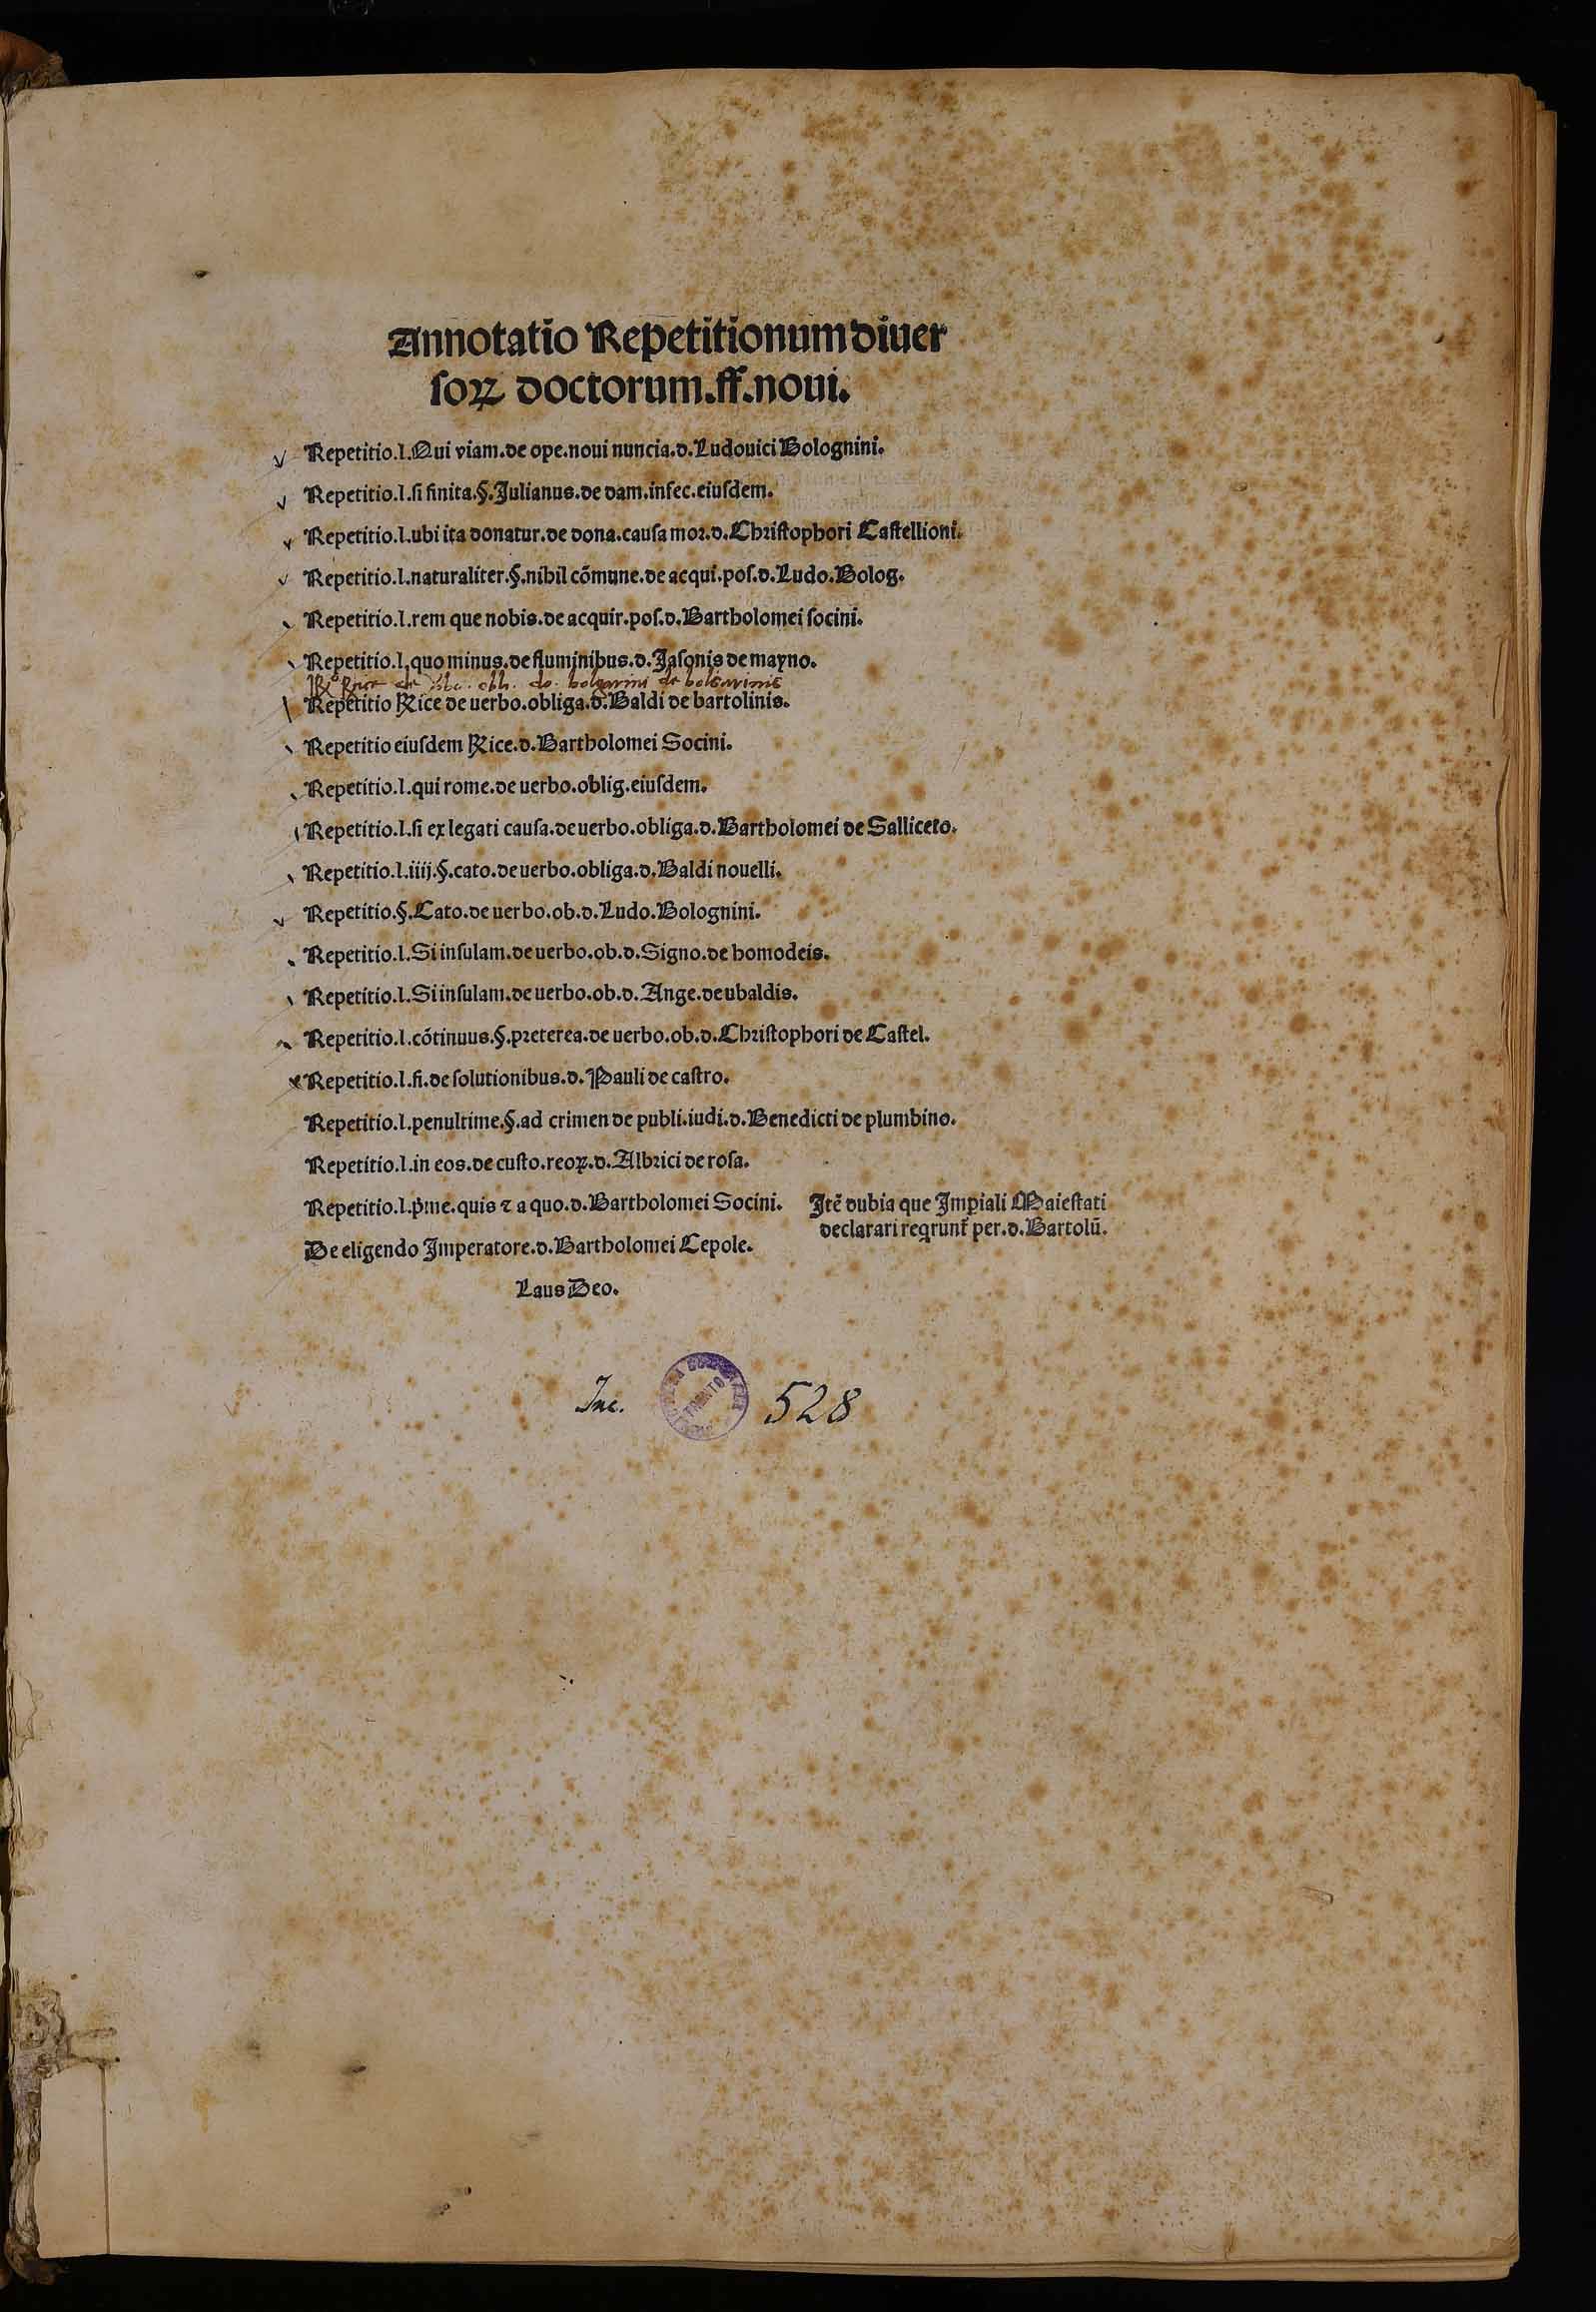 Annotatio Repetitionum diuer
ſoꝝ doctorum.ff.noui.
Repetitio.l.Qui viam.de ope.noui nuncia.d.Ludouici Bolognini.
Repetitio.l.ſi finita.§.Julianus.de dam.infec.eiuſdem.
Repetitio.l.ubi ita donatur.de dona.cauſa moꝛ.d.Chꝛiſtophori Caſtellioni.
Repetitio.l.naturaliter.§.nihil cõmune.de acqui.poſ.d.Ludo.Bolog.
Repetitio.l.rem que nobis.de acquir.poſ.d.Bartholomei ſocini.
Repetitio.l.quo minus.de fluminibus.d.Jaſonis de mayno.
de obli. do. bolgarini de bolgarinis
Repetitio Rice de uerbo.obliga.d.Baldi de bartolinis.
Repetitio eiuſdem Rice.d.Bartholomei Socini.
Repetitio.l.qui rome.de uerbo.oblig.eiuſdem.
Repetitio.l.ſi ex legati cauſa.de uerbo.obliga.d.Bartholomei de Salliceto.
Repetitio.l.iiij.§.cato.de uerbo.obliga.d.Baldi nouelli.
Repetitio.§.Cato.de uerbo.ob.d.Ludo.Bolognini.
Repetitio.l.Si inſulam.de uerbo.ob.d.Signo.de homodeis.
Repetitio.l.Si inſulam.de uerbo.ob.d.Ange.de ubaldis.
Repetitio.l.cõtinuus.§.pꝛeterea.de uerbo.ob.d.Chꝛiſtophori de Caſtel.
Repetitio.l.fi.de ſolutionibus.d.Pauli de caſtro.
Repetitio.l.penultime.§.ad crimen de publi.iudi.d.Benedicti de plumbino.
Repetitio.l.in eos.de cuſto.reoꝝ.d.Albꝛici de roſa.
Repetitio.l.p̃me.quis ⁊ a quo.d.Bartholomei Socini.
De eligendo Imperatore.d.Bartholomei Cepole.
Itẽ dubia que Imꝑiali Maieſtati
declarari reqrunt̃ per.d.Bartolũ.
Laus Deo.
Inc. TRENTO 528